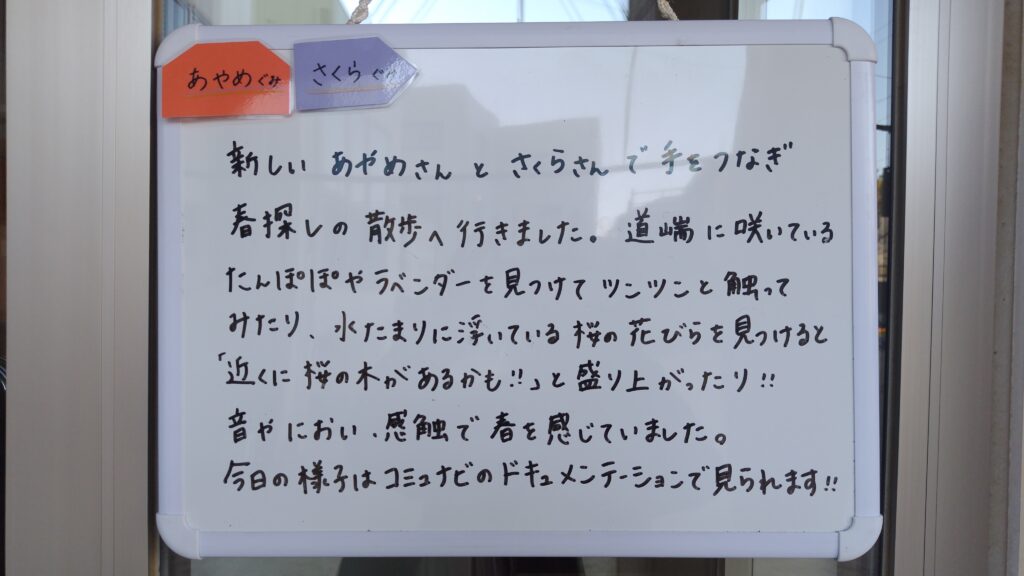 あやめぐみ
さくらぐみ
新しい あやめさんと さくらさんで 手をつなぎ
春探しの 散歩へ 行きました。 道端に 咲いている
たんぽぽや ラベンダーを 見つけて ツンツンと 触って
みたり、水たまりに浮いている 桜の花びらを見つけると
「近くに 桜の木が あるかも!!」と 盛り上がったり!!
音や におい、感触で 春を 感じていました。
今日の様子は コミュナビの ドキュメンテーションで見られます!!